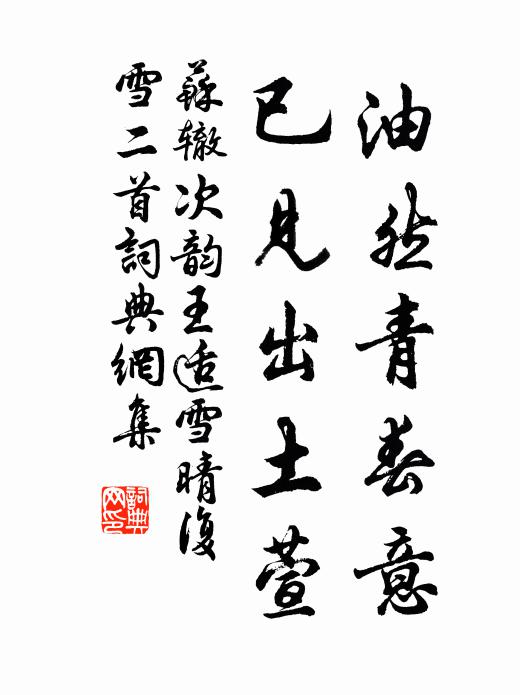 油然青春意
已见出土萱
蘇辙次韵王适雪晴復
雪二首詞典網集
詞典网印